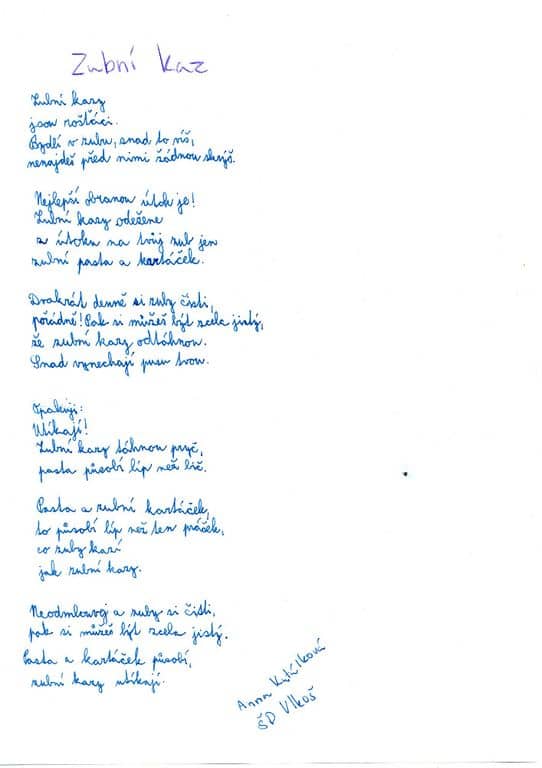 Zubní kaz
Zubní kazy
jsou rošťáci.
Bydlí v zubu, snad to víš,
nenajdeš před nimi žádnou skrýš.
Nejlepší obranou útok je!
Zubní kazy odežene
z útoku na tvůj zub jen
zubní pasta a kartáček.
Dvakrát denně si zuby čisti,
pořádně! Pak si můžeš být zcela jistý,
že zubní kazy odtáhnou.
Snad vynechají pusu tvou.
Opakuji:
Utíkají!
Zubní kazy táhnou pryč,
pasta působí líp než bič.
Pasta a zubní kartáček,
to působí líp než ten práček,
co zuby kazí
jak zubní kazy.
Neodmlouvej a zuby si čisti,
pak si můžeš být zcela jistý.
Pasta a kartáček působí,
zubní kazy utíkají.
Anna
ŠD Vlkoš